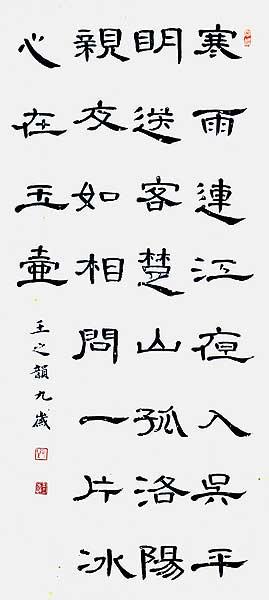 寒雨連江夜入吳平
明送客楚山孤洛陽
親友如相問一片冰
心在玉壺
王之韻九歲